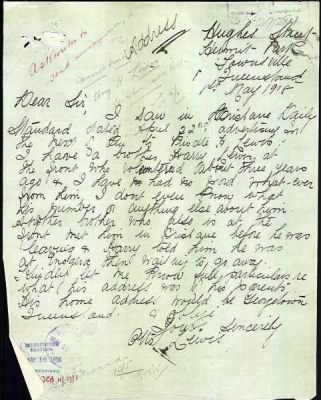 Address
Hughes Street
Hermit Park
Townsville
Queensland
1st May 1918
Dear Sir,
I saw in Brisbane Daily
Standard dated April 22nd advertising in
the Miss
I have a brother Harry Lewis at
the front who volunteered about three years
ago & I have to had no word what-ever
from him, I don't even know what
his number or anything else about him.
Another brother who also is at the
front met him in Brisbane before he was
leaving & Harry told him he was
at Enoggera then waiting to go away.
Kindly let me know full particulars re
what his address was & his parents.
His home address would be Georgetown
Queensland. & oblige
Yours Sincerely
Lewis